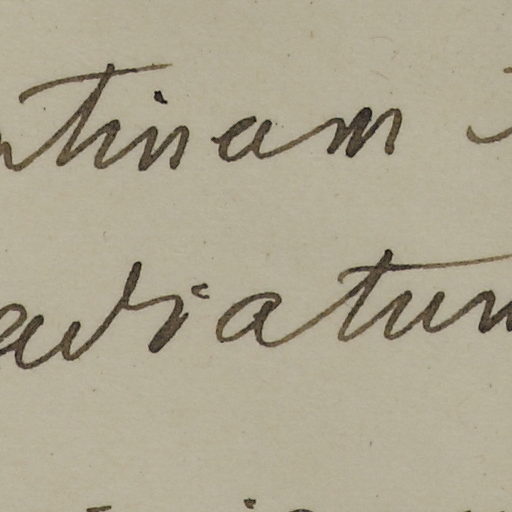 tinam
adiatum